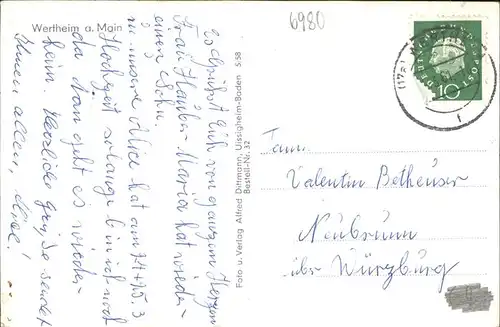 Wertheim a. Main
6980
Es grüßt Euch von ganzem Herzen
Frau Häuber Maria hat wieder
einen Sohn.
unsere Alice hat am
Hochzeit solange bin ich noch
da dan geht es wieder
heim. Herzliche Grüße sendet
Ihnen allen,
Foto u. Verlag Alfred Dittmann, Uissigheim-Baden 5.58
Bestell-Nr. 32
DEUTSCHE BUNDESPOST
10
f
Fam.
Valentin Betheuser
Neubrunn
über Würzburg